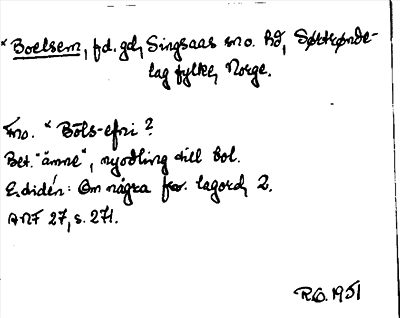 * Boelsem, fd. gd, Singsaas sno. hd, Sørtrønde-
lag fylke, Norge.
Fno. * Bōls-efni ?
Bet. "ämne", nyodling till bol.
E. Lidén: Om några fsv. lagord, 2.
ANF 27, s. 271.
R.O. 1951